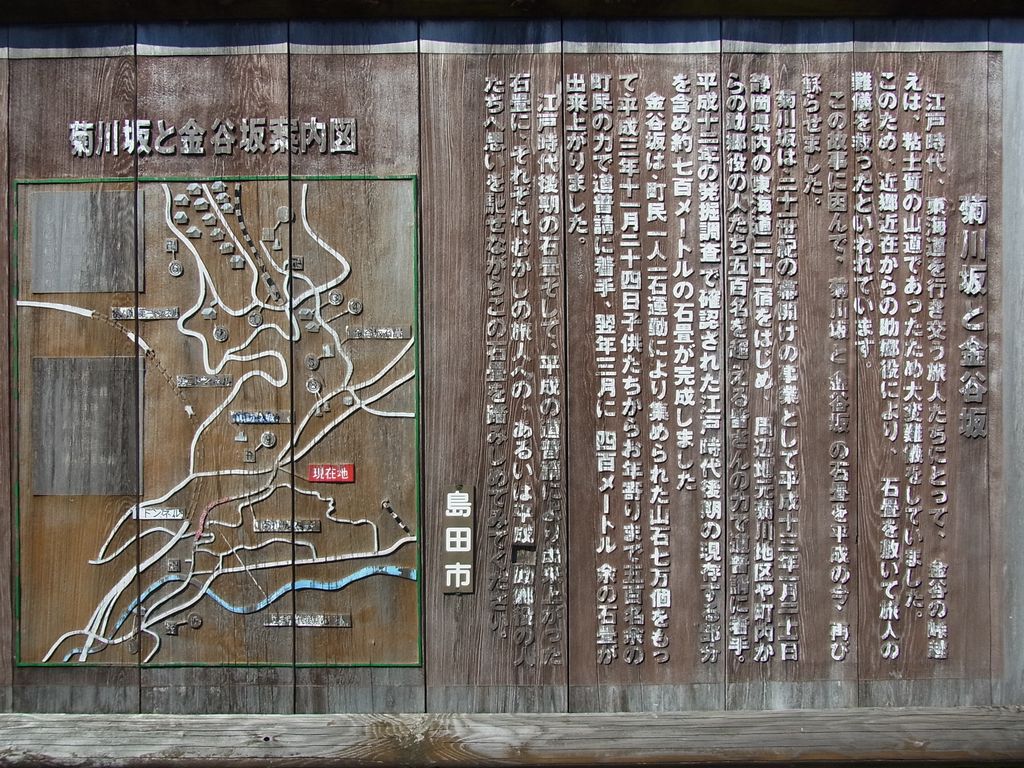 菊川坂と金谷坂
江戸時代、東海道を行き交う旅人たちにとって、金谷の峠越
えは、粘土質の山道であったため大変難儀をしていました。
このため、近郷近在からの助郷役により、石畳を敷いて旅人の
難儀を救ったといわれています。
この故事に因んで、菊川坂と金谷坂の石畳を平成の今、再び
蘇らせました。
菊川坂は、二十一世紀の幕開けの事業として平成十三年一月二十一日
静岡県内の東海道二十二宿をはじめ、周辺地元菊川地区や町内か
らの助郷役の人たち五百名を超える皆さんの力で道普請に着手。
平成十二年の発掘調査で確認された江戸時代後期の現存する部分
を含め約七百メートルの石畳が完成しました
金谷坂は、町民一人一石運動により集められた山石七万個をもっ
て平成三年十一月二十四日子供たちからお年寄りまで五百名余の
町民の力で道普請に着手、翌年三月に 四百メートル 余の石畳が
出来上がりました。
江戸時代後期の石畳そして、平成の道普請により出来上がった
石畳に、それぞれ、むかしの旅人の、あるいは平成の
たちへ想いを馳せながらこの石畳を踏みしめてみてください。
島田市
菊川坂と金谷坂案内図
現在地
トンネル